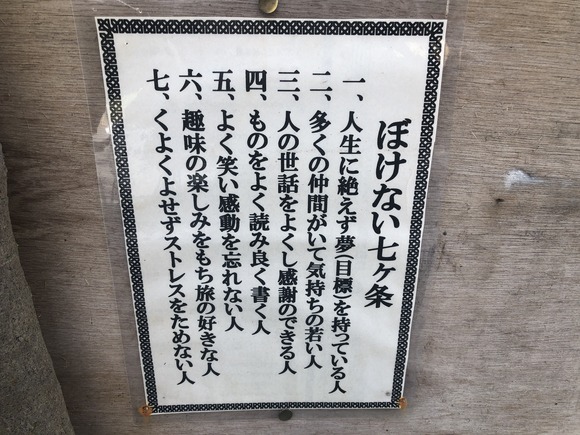 ぼけない七ヶ条
一、人生に絶えず夢(目標)を持っている人
二、多くの仲間がいて気持ちの若い人
三、人の世話をよくし感謝のできる人
四、ものをよく読み良く書く人
五、よく笑い感動を忘れない人
六、趣味の楽しみをもち旅の好きな人
七、くよくよせずストレスをためない人